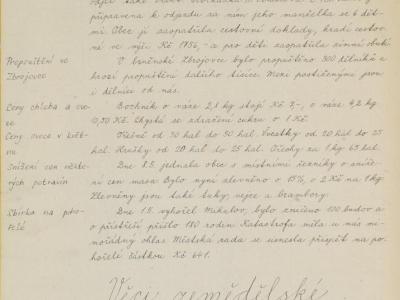 připravena k odjezdu za ním jeho manželka se 6 dět-
mi. Obec jí zaopatřila cestovní doklady, hradí cestov-
né ve výši Kč 1786,- a pro děti zaopatřila zimní obutí
Propouštění ve Zbrojovce
V brněnské Zbrojovce bylo propuštěno 300 dělníků a
hrozí propuštění dalšího tisíce. Mezi postiženými jsou
i dělníci od nás.
Ceny chleba a
Bochník o váze 2,1 kg stojí Kč 7,-, o váze 4,2 kg
Chystá se zdražení cukru o 1 Kč.
Ceny ovoce v květ-
Třešně od 30 hal do 50 hal. Švestky od 20 hal do 25
hal. Hrušky od 20 hal do 25 hal. Ořechy za 1 kg 65 hal.
Snížení cen
ných potravin
Dne 8.5. jednala obec s místními řezníky o sníže-
ní cen masa. Bylo nyní zlevněno o 15%, o 2 Kč na 1 kg.
Zlevněny jsou také tuky, vejce a brambory.
Sbírka na poho-
řelé
Dne 1.5. vyhořel Mukařov, bylo zničeno 100 budov a
o přístřeší přišlo 180 rodin. Katastrofa měla u nás mi-
mořádný ohlas. Městská rada se usnesla přispět na po-
hořelé částkou Kč 641.
Věci zemědělské